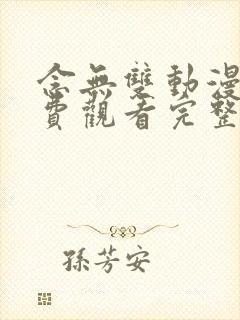 念無雙動漫
費觀看完整
孫芳安